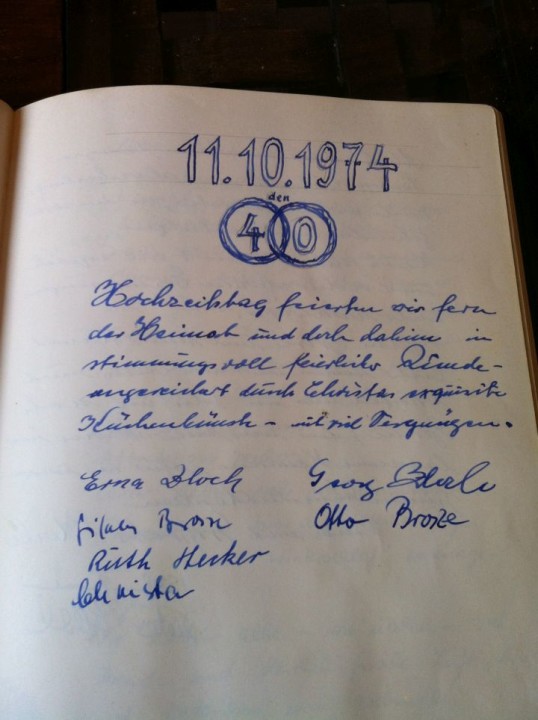 11.10.1974
den
40
Hochzeitstag feierten wir fern
der Heimat und doch daheim in
stimmungsvoll feierlicher Runde -
angereichert durch Christas exquisite
Küchenkünste - mit viel Vergnügen.
Erna Bloch Georg
Otto Broze
Ruth Hecker
Christa